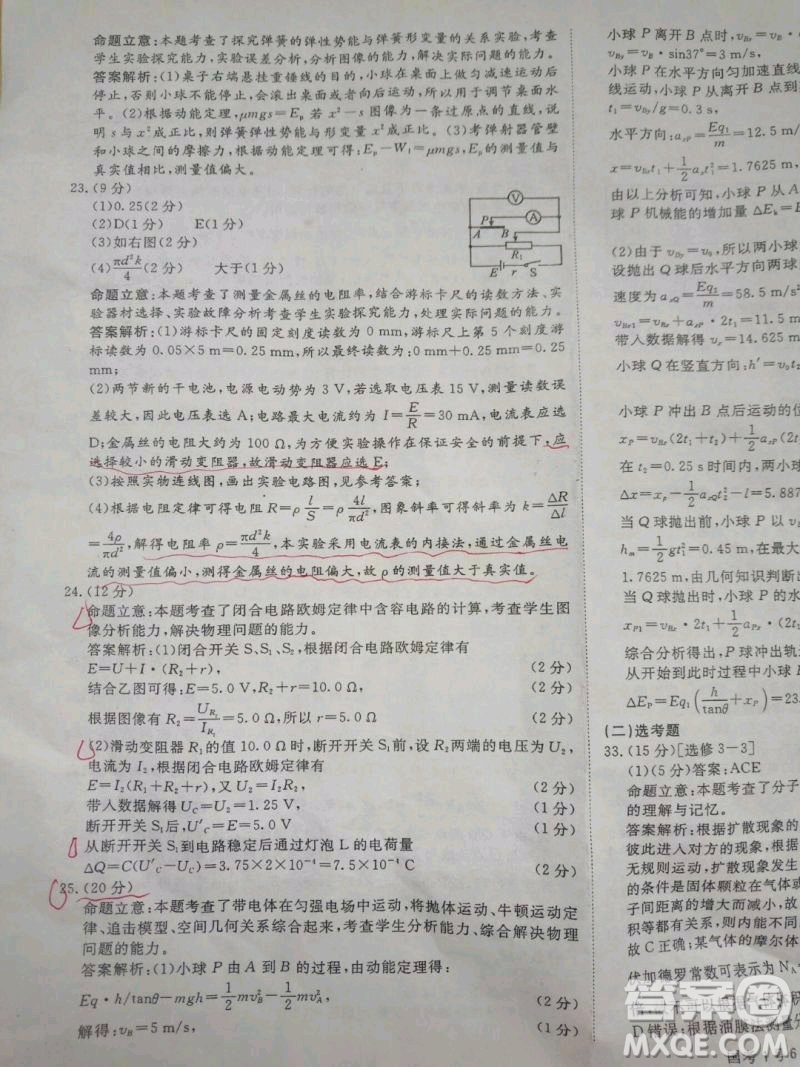 命题立意:本题考查了探究弹簧的弹性势能与弹簧形变量的关系实验,考查
学生实验探究能力,实验误差分析,分析图像的能力,解决实际问题的能力。
答案解析:(1)桌子右端悬挂重锤线的目的,小球在桌面上做匀减速运动后
停止,否则小球不能停止,会滚出桌面或者向后运动,所以用于调节桌面水
平。(2)根据动能定理,μmgs=Eₚ 若 x²-s 图像为一条过原点的直线,说
明 s 与 x² 成正比,则弹簧弹性势能与形变量 x² 成正比。(3)考弹射器管壁
和小球之间的摩擦力,根据动能定理可得:Eₚ-W₁=μmgs,测量值与
真实值相比,测量值偏大。
23.(9 分)
(1)0.25(2 分)
(2)D(1 分) E(1 分)
(3)如右图(2 分)
(4)πd²k/4(2 分) 大于(1 分)
V
A
P
A B
R₁
E r S
命题立意:本题考查了测量金属丝的电阻率,结合游标卡尺的读数方法、实
验器材选择、实验故障分析考查学生实验探究能力,处理实际问题的能力。
答案解析:(1)游标卡尺的固定刻度读数为 0 mm,游标尺上第 5 个刻度游
标读数为 0.05×5 m=0.25 mm,所以最终读数为:0 mm+0.25 mm=0.25
mm;
(2)两节新的干电池,电源电动势为 3 V,若选取电压表 15 V,测量读数误
差较大,因此电压表选 A;电路最大电流约为 I=E/R=30 mA,电流表应选
D;金属丝的电阻约为 100 Ω,为方便实验操作在保证安全的前提下,应
选择较小的滑动变阻器,故滑动变阻器应选 E;
(3)按照实物连线图,画出实验电路图,见参考答案;
(4)根据电阻定律可得电阻 R=ρl/S=ρ4l/πd²,图象斜率可得斜率为 k=ΔR/Δl
=4ρ/πd²,解得电阻率 ρ=πd²k/4,本实验采用电流表的内接法,通过金属丝电
流的测量值偏小,测得金属丝的电阻偏大,故 ρ 的测量值大于真实值。
24.(12 分)
命题立意:本题考查了闭合电路欧姆定律中含容电路的计算,考查学生图
像分析能力,解决物理问题的能力。
答案解析:(1)闭合开关 S、S₁、S₂,根据闭合电路欧姆定律有
E=U+I·(R₂+r), (2 分)
结合乙图可得:E=5.0 V,R₂+r=10.0 Ω, (2 分)
根据图像有 R₂=U_R₂/I_R₂=5.0 Ω,所以 r=5.0 Ω (2 分)
(2)滑动变阻器 R₁ 的值 10.0 Ω时,断开开关 S₁ 前,设 R₂ 两端的电压为 U₂,
电流为 I₂,根据闭合电路欧姆定律有
E=I₂(R₁+R₂+r),又 U₂=I₂R₂, (2 分)
带入数据解得 U_C=U₂=1.25 V, (1 分)
断开开关 S₁ 后,U′_C=E=5.0 V (1 分)
从断开开关 S₁ 到电路稳定后通过灯泡 L 的电荷量
ΔQ=C(U′_C-U_C)=3.75×2×10⁻⁴=7.5×10⁻⁴ C (2 分)
25.(20 分)
命题立意:本题考查了带电体在匀强电场中运动,将抛体运动、牛顿运动定
律、追击模型、空间几何关系综合起来,考查学生分析能力、综合解决物理
问题的能力。
答案解析:(1)小球 P 由 A 到 B 的过程,由动能定理得:
Eq·h/tanθ-mgh=½mv²_B-½mv²_A, (2 分)
解得:v_B=5 m/s, (1 分)
小球 P 离开 B 点时,v_Bx=
v_By=v_B·sin37°=3 m/s,
小球 P 在水平方向匀加速直线
线运动,小球 P 从离开 B 点到
t₁=v_By/g=0.3 s,
水平方向:a_xP=Eq₁/m=12.5 m/
x=v_Bx t₁+½a_x t₁²=1.7625 m,
由以上分析可知,小球 P 从 A
球 P 机械能的增加量 ΔE_k=
(2)由于 v_By=v₀,所以两小球
设抛出 Q 球后水平方向
速度为 a_xQ=Eq₁/m=58.5 m/s
v_Bx1=v_Bx+a_xP·2t₁=11.5 m
带入数据解得 v_x=14.625 m
小球 Q 在竖直方向:h′=v₀
小球 P 冲出 B 点后运动的位
x_P=v_Bx(2t₁+t₂)+½a_xP(2
在 t₂=0.25 s 时间内,两小
Δx=x_P-½a_xQ t₂²=5.887
当 Q 球抛出前,小球 P 以水
h_m=½gt₁²=0.45 m,在最大
1.7625 m,由几何知识判断出
当 Q 球抛出时,小球 P 的水
x_P1=v_Bx·2t₁+½a_Px·(2
综合分析得出,P 球冲出轨
从开始到此时过程中小球 P
ΔE_P=Eq₁(h/tanθ+x_P)=23.
(二)选考题
33.(15 分)[选修 3-3]
(1)(5 分)答案:ACE
命题立意:本题考查了分子
的理解与记忆。
答案解析:根据扩散现象的
彼此进入对方的现象,根据
无规则运动,扩散现象的
的条件是固体颗粒在气体或
子间距离的增大而减小,故
等都有关系,则内能大的物
故 C 正确;某气体的摩尔体
伏加德罗常数可表示为 N_A
D 错误;根据油膜法测量分
答案圈
MXQE.COM